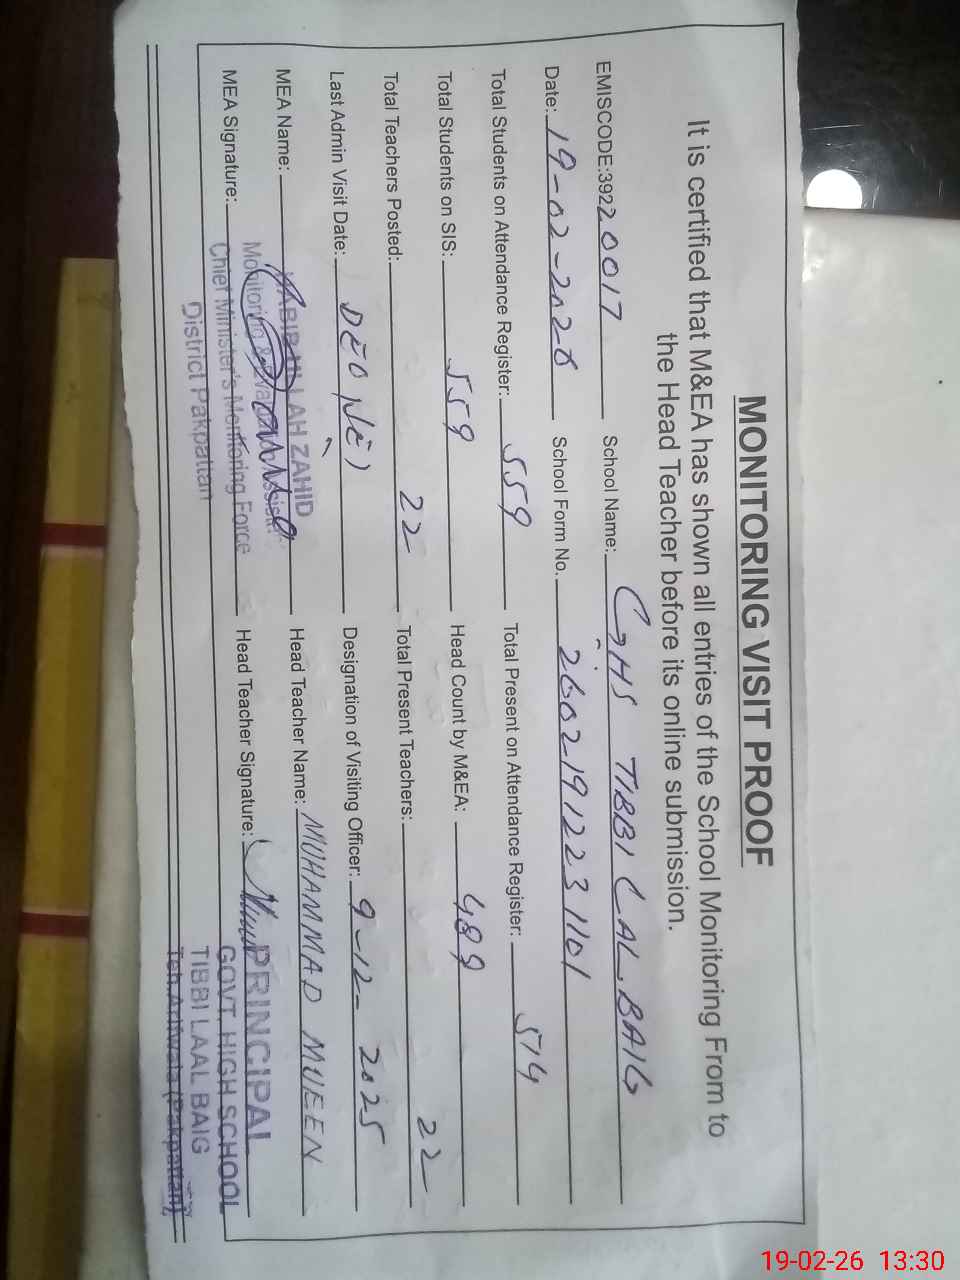 MONITORING VISIT PROOF
It is certified that M&EA has shown all entries of the School Monitoring From to
the Head Teacher before its online submission.
EMISCODE:39220017 School Name: GHS TIBBI LAL BAIG
Date: 19-02-2026 School Form No. 26021912231101
Total Students on Attendance Register: 559 Total Present on Attendance Register: 514
Total Students on SIS: 559 Head Count by M&EA: 489
Total Teachers Posted: 22 Total Present Teachers: 22
Last Admin Visit Date: DEO Designation of Visiting Officer: 9-12-2025
MEA Name: Head Teacher Name: MUHAMMAD MUEEN
MEA Signature: Head Teacher Signature:
HABIB ULLAH ZAHID
Monitoring &
Chief Minister's Monitoring Force
District Pakpattan
PRINCIPAL
GOVT. HIGH SCHOOL
TIBBI LAAL BAIG
Teh. Arifwala (Pakpattan)
19-02-26 13:30